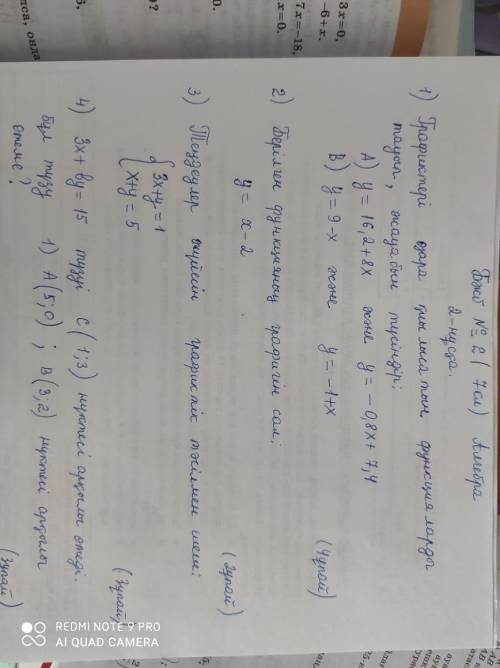 Бжб №2 (7кл) Алгебра
2-нұсқа.
1) Графиктері өзара қиылысатын функцияларды
тауып, жауабын түсіндір:
A) y = 16,2+8x және y = -0,8x+7,4
B) y = 9-x және y = -1+x
(4ұпай)
2) Берілген функцияның графигін сал:
y = x-2
(2ұпай)
3) Теңдеулер жүйесін графиктік тәсілмен шеш:
3x+y=1
x+y=5
(3ұпай)
4) 3x+by=15 түзуі C(1;3) нүктесі арқылы өтеді.
Бұл түзу 1) A(5;0); B(3;2) нүктесі арқылы
өтеме?
(3ұпай)
3x=0,
-6+x.
7x=-18,
x=0.
0.
тса, онда
REDMI NOTE 9 PRO
AI QUAD CAMERA